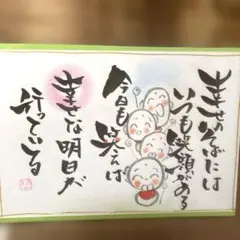 幸せのそばには
いつも笑顔がある
今日も笑えば
幸せな明日が
待っている